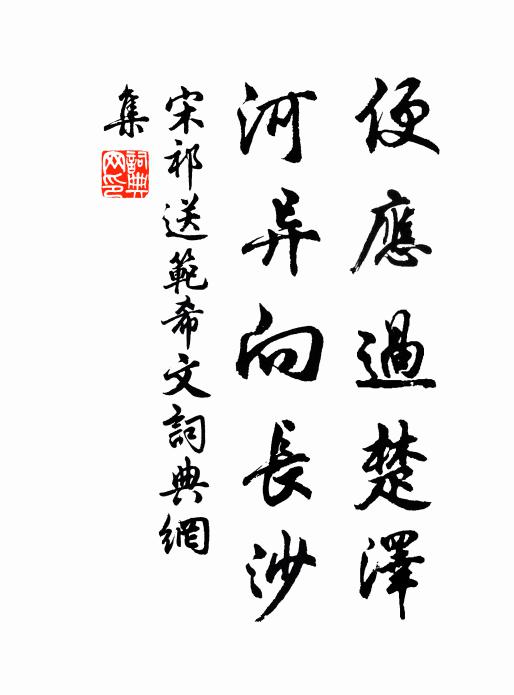 便應過楚澤
河异向長沙
宋祁送範希文詞典網
集
詞典
网印